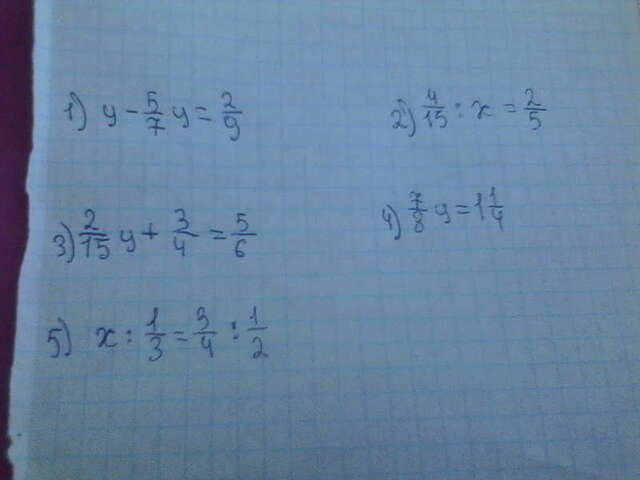 1) y - 5/7 y = 2/9
2) 4/15 : x = 2/5
3) 2/15 y + 3/4 = 5/6
4) 7/8 y = 1 1/4
5) x : 1/3 = 3/4 : 1/2